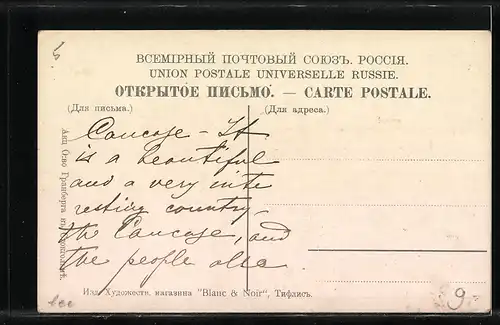 ВСЕМІРНЫЙ ПОЧТОВЫЙ СОЮЗЪ. РОССІЯ.
UNION POSTALE UNIVERSELLE RUSSIE.
ОТКРЫТОЕ ПИСЬМО. — CARTE POSTALE.
(Для письма.)
(Для адреса.)
Caucase - It
is a beautiful
and a very inte
resting country -
the Caucase, and
the people also
Акц. О-во Гранбергъ въ Стокгольмѣ.
Изд. Художеств. магазина "Blanc & Noir", Тифлисъ.
9.-